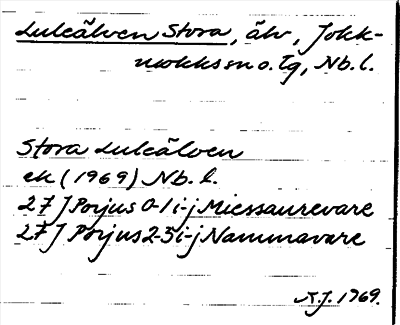 Luleälven Stora, älv, Jokk-
mokks sn o. tg, Nb. l.
Stora Luleälven
ek (1969) Nb. l.
27 J Porjus 0-1 i-j Miessaurevare
27 J Porjus 2-3 i-j Nammavare
N.J. 1969.